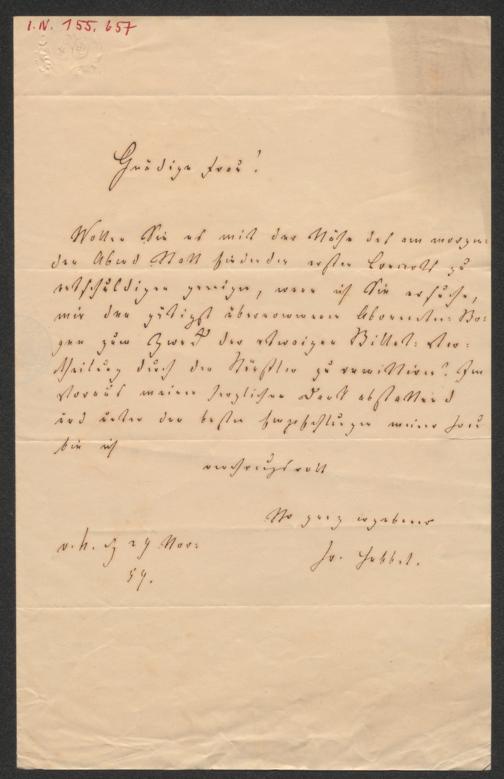 I.N. 155.657
Gnädige Frau!
Wollen Sie es mit der Nähe des am morgen-
den Abend Statt findenden ersten Concerts zu
entschuldigen geneigen, wenn ich Sie ersuche,
mir den gütigst übernommenen Abonnenten-Bo-
gen zum Zweck der etwaigen Billet-Ver-
theilung durch den Künstler zu remittiren? Im
Voraus meinen herzlichen Dank abstattend
und unter den besten Empfehlungen meiner Frau
bin ich
verehrungsvoll
Ihr ganz ergebener
Fr. Hebbel.
v. H. d 29 Nov:
59.